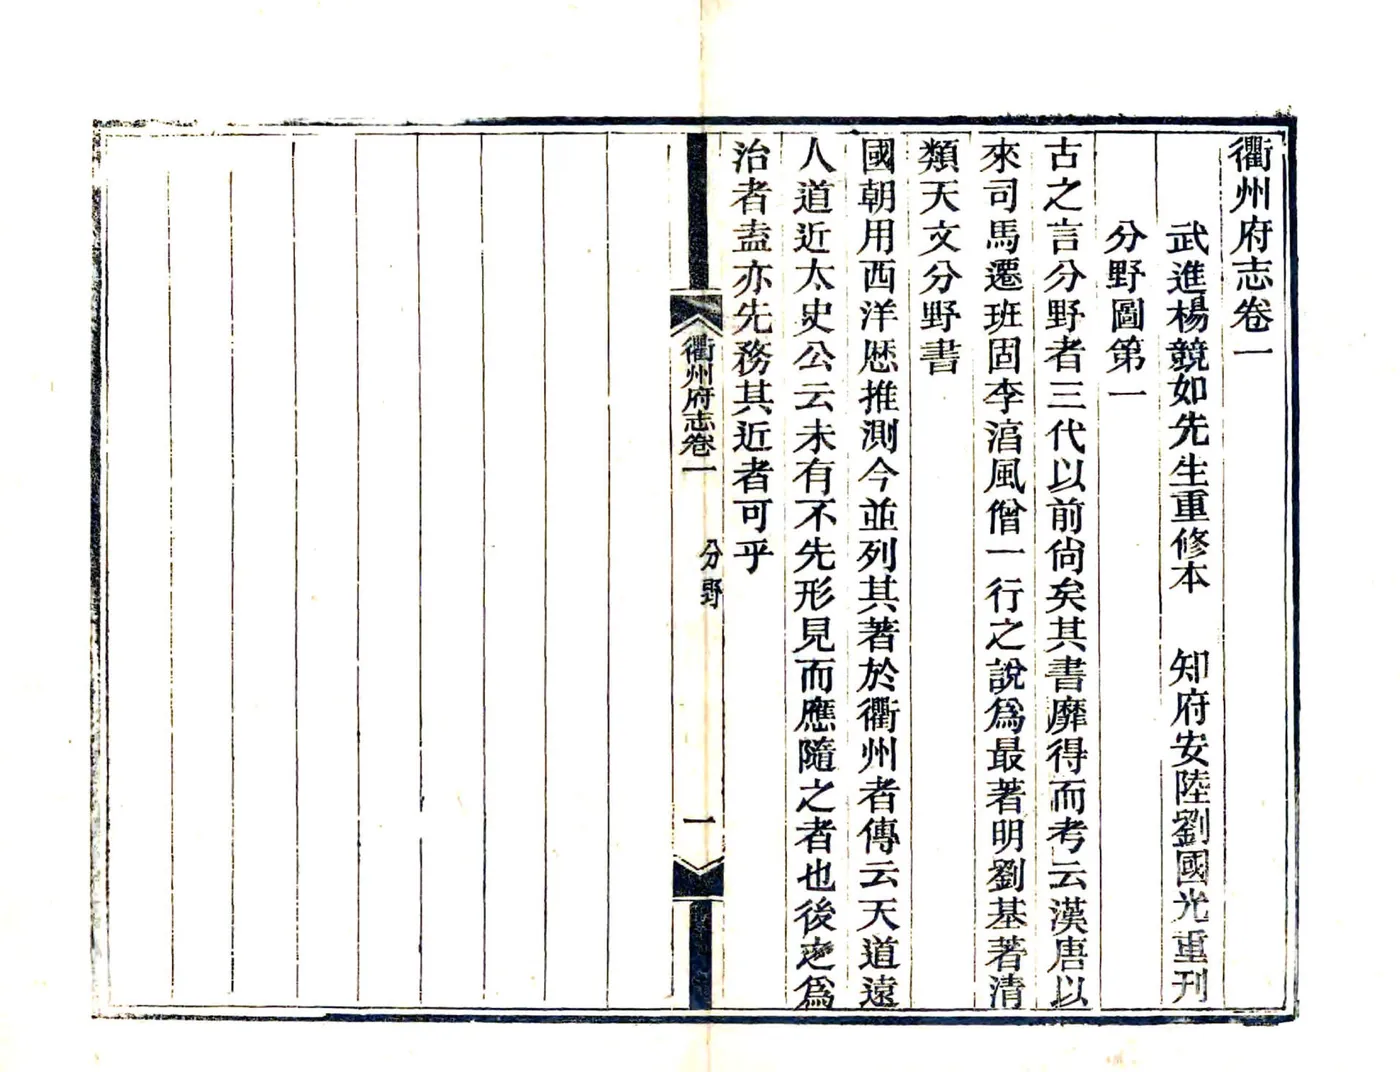 衢州府志卷一
武進楊競如先生重修本　知府安陸劉國光重刊
分野圖第一
古之言分野者三代以前尙矣其書靡得而考云漢唐以
來司馬遷班固李淳風僧一行之說爲最著明劉基著清
類天文分野書
國朝用西洋厯推測今並列其著於衢州者傳云天道遠
人道近太史公云未有不先形見而應隨之者也後之爲
治者盍亦先務其近者可乎
衢州府志卷一　分野　一